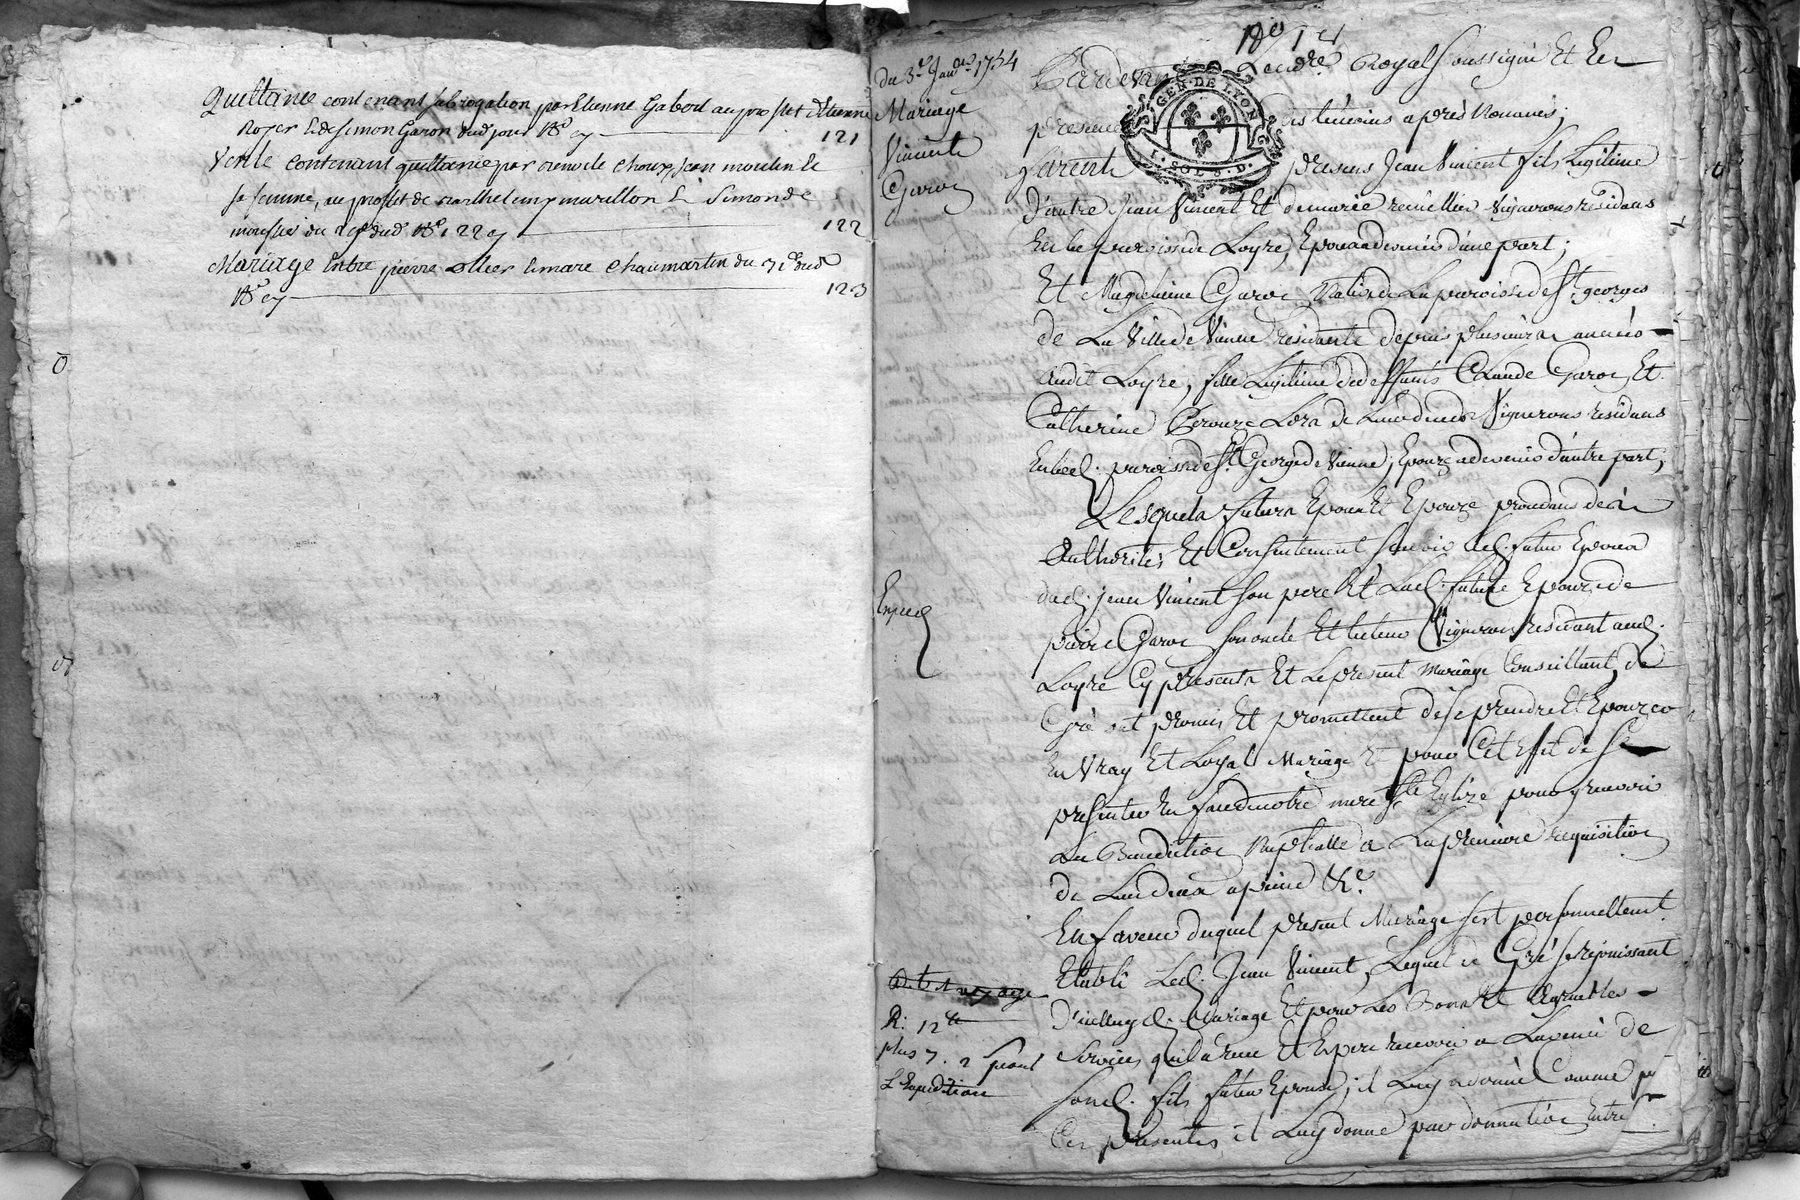 Quittance contenant subrogation par Etienne Gabert au profit d'Etienne
Royer & de Simon Garon dud. jour Nº cy 121
Vente contenant quittance par Jean moulin &
sa femme, au profit de Barthelemy marillon & Simonde
du dud. Nº 122 cy 122
Mariage Entre pierre & marie Chaumartin du 31e dud.
Nº cy 123
Du 3e Janv. 1754
Mariage
Vincent &
Garon
Exped.
R: 12 tt
plus 7. 2 s pour
L'Expedition
Nº 1er
Pardevant Le no.re Royal soussigné Et En
presence des témoins apres Nommés;
furent GEN. DE LYON 1. SOL 8. D. presens Jean Vincent fils Legitime
d'autre Jean Vincent Et de marie Vignerons résidans
En la paroisse de Loyre, Epoux advenir d'une part;
Et Magdeleine Garon Native de La paroisse de St. georges
de La Ville de Vienne résidante depuis plusieurs années
audit Loyre, fille Legitime de deffunts Claude Garon Et
Catherine Vignerons residans
En lad. paroisse de St. George de Vienne, Epouze advenir d'autre part,
Lesquels futurs Epoux Et Epouze procedans de
Authorités Et Consentement sçavoir led. futur Epoux
dud. jean Vincent son pere Et Lad. future Epouze de
pierre Garon son oncle Et tuteur Vigneron résidant aud.
Loyre Cy présents Et Le présent Mariage Conseillant, de
Gré ont promis Et promettent de se prendre Et Epouzer
En Vray Et Loyal Mariage Et pour Cet Effet de Se
présenter En face de notre mere Ste Eglize pour y recevoir
La Benediction Nuptialle a La premiere requisition
de L'un d'eux a peine &c.
En faveur duquel présent Mariage s'est personnellement
Etabli Led. Jean Vincent, Lequel de Gré se rejouissant
d'icelluy d. Mariage Et pour Les Bons Et Agreables
Services quil a reçu Et Espere recevoir a L'avenir de
sond. fils futur Epoux, il Luy a donné Comme par
Ces présentes il Luy donne par donnation Entre